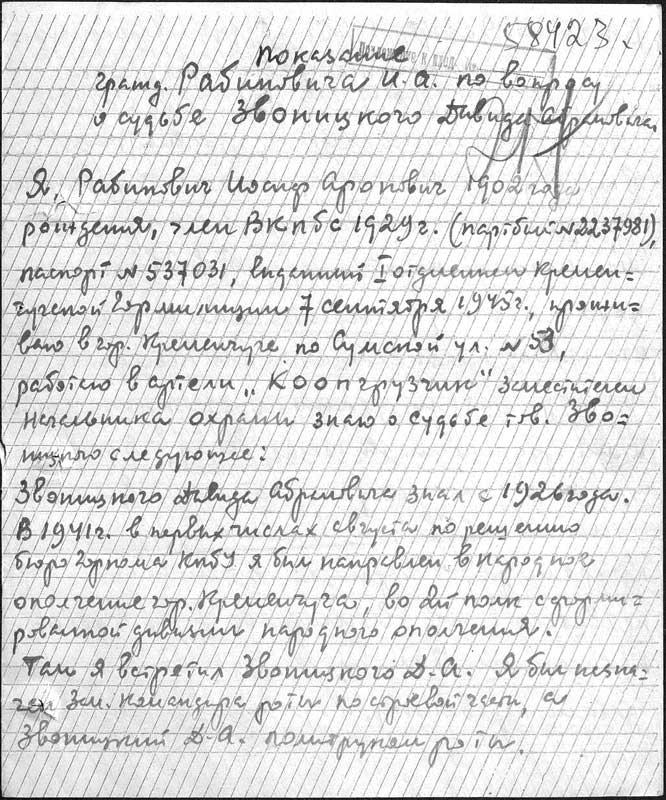 58423.
показание
гражд. Рабиновича И.А. по вопросу
о судьбе Звоницкого Давида Абрамовича.
Я, Рабинович Иосиф Аронович 1902 года
рождения, член ВКПб с 1929г. (партбилет №2237981),
паспорт №537031, виданный I отделением Кремен=
чугской Гормилиции 7 сентября 1945г., прожи=
ваю в гор. Кременчуге по Сумской ул. №53,
работаю в артели „Коопгрузчик" заместителем
начальника охраны знаю о судьбе тов. Зво=
ницкого следующее:
Звоницкого Давида Абрамовича знал с 1926 года.
В 1941г. в первых числах августа по решению
бюро Горкома КПбУ я был направлен в народное
ополчение гор. Кременчуга, во 2й полк сформи=
рованной дивизии народного ополчения.
Там я встретил Звоницкого Д.А. Я был назна=
чен Зам. командира роты по строевой части, а
Звоницкий Д.А. политруком роты.